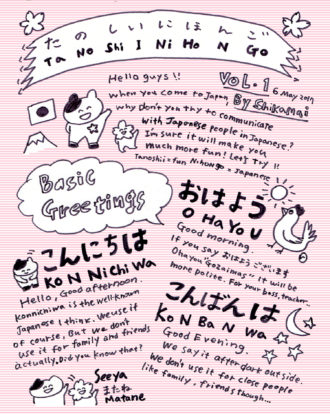 たのしいにほんご
Ta No Shi I Ni Ho N Go
Hello guys!!
VOL.1 6 May 2019
By Shikamai
When you come to Japan,
why don't you try to communicate
with Japanese people in Japanese?
I'm sure it will make you
much more fun! Let's Try!!
Tanoshii=fun Nihongo=Japanese
Basic
Greetings
おはよう
O Ha Yo U
Good morning.
If you say おはようございます
Ohayou"Gozaimas" it will be
more polite. For your boss, teacher..
こんにちは
Ko N Ni Chi Wa
Hello, Good afternoon.
Konnichiwa is the well known
Japanese I think. We use it
of course, But we don't
use it for family and friends
actually, Did you know that?
こんばんは
Ko N Ba N Wa
Good Evening.
We say it after dark outside.
We don't use it for close people
like family, friends though...
See ya
またね
Matane